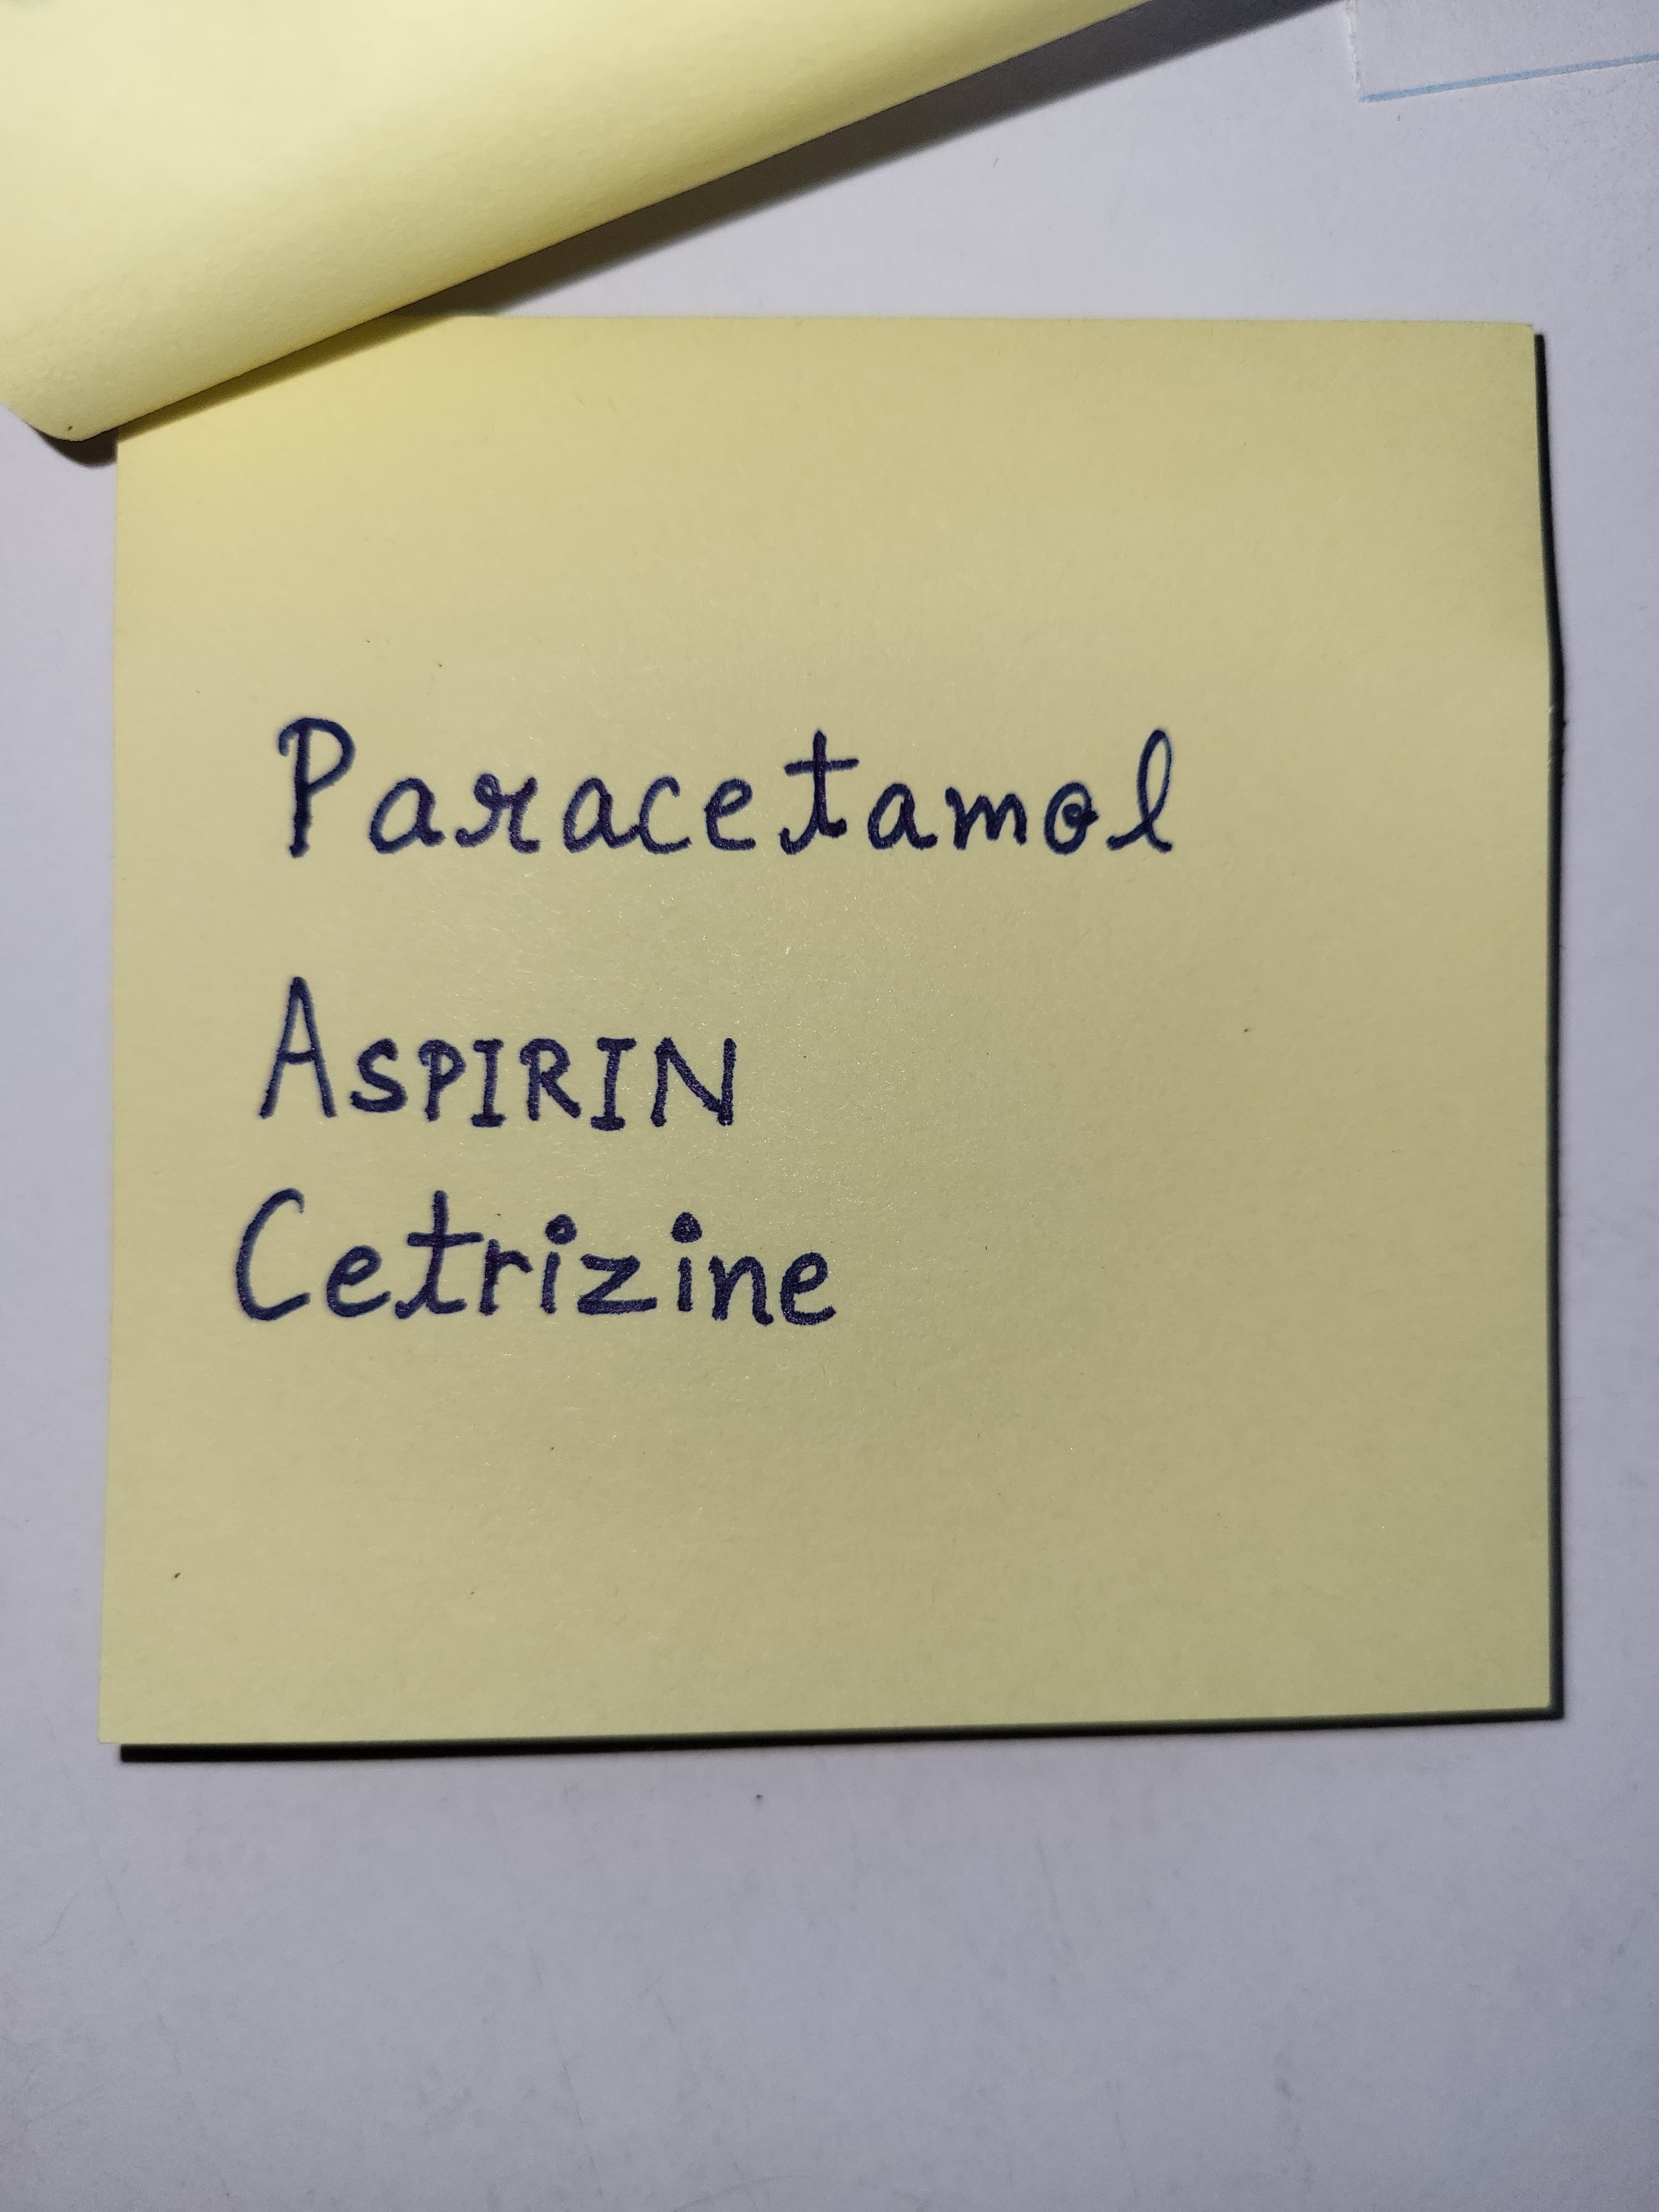 Paracetamol
ASPIRIN
Cetrizine